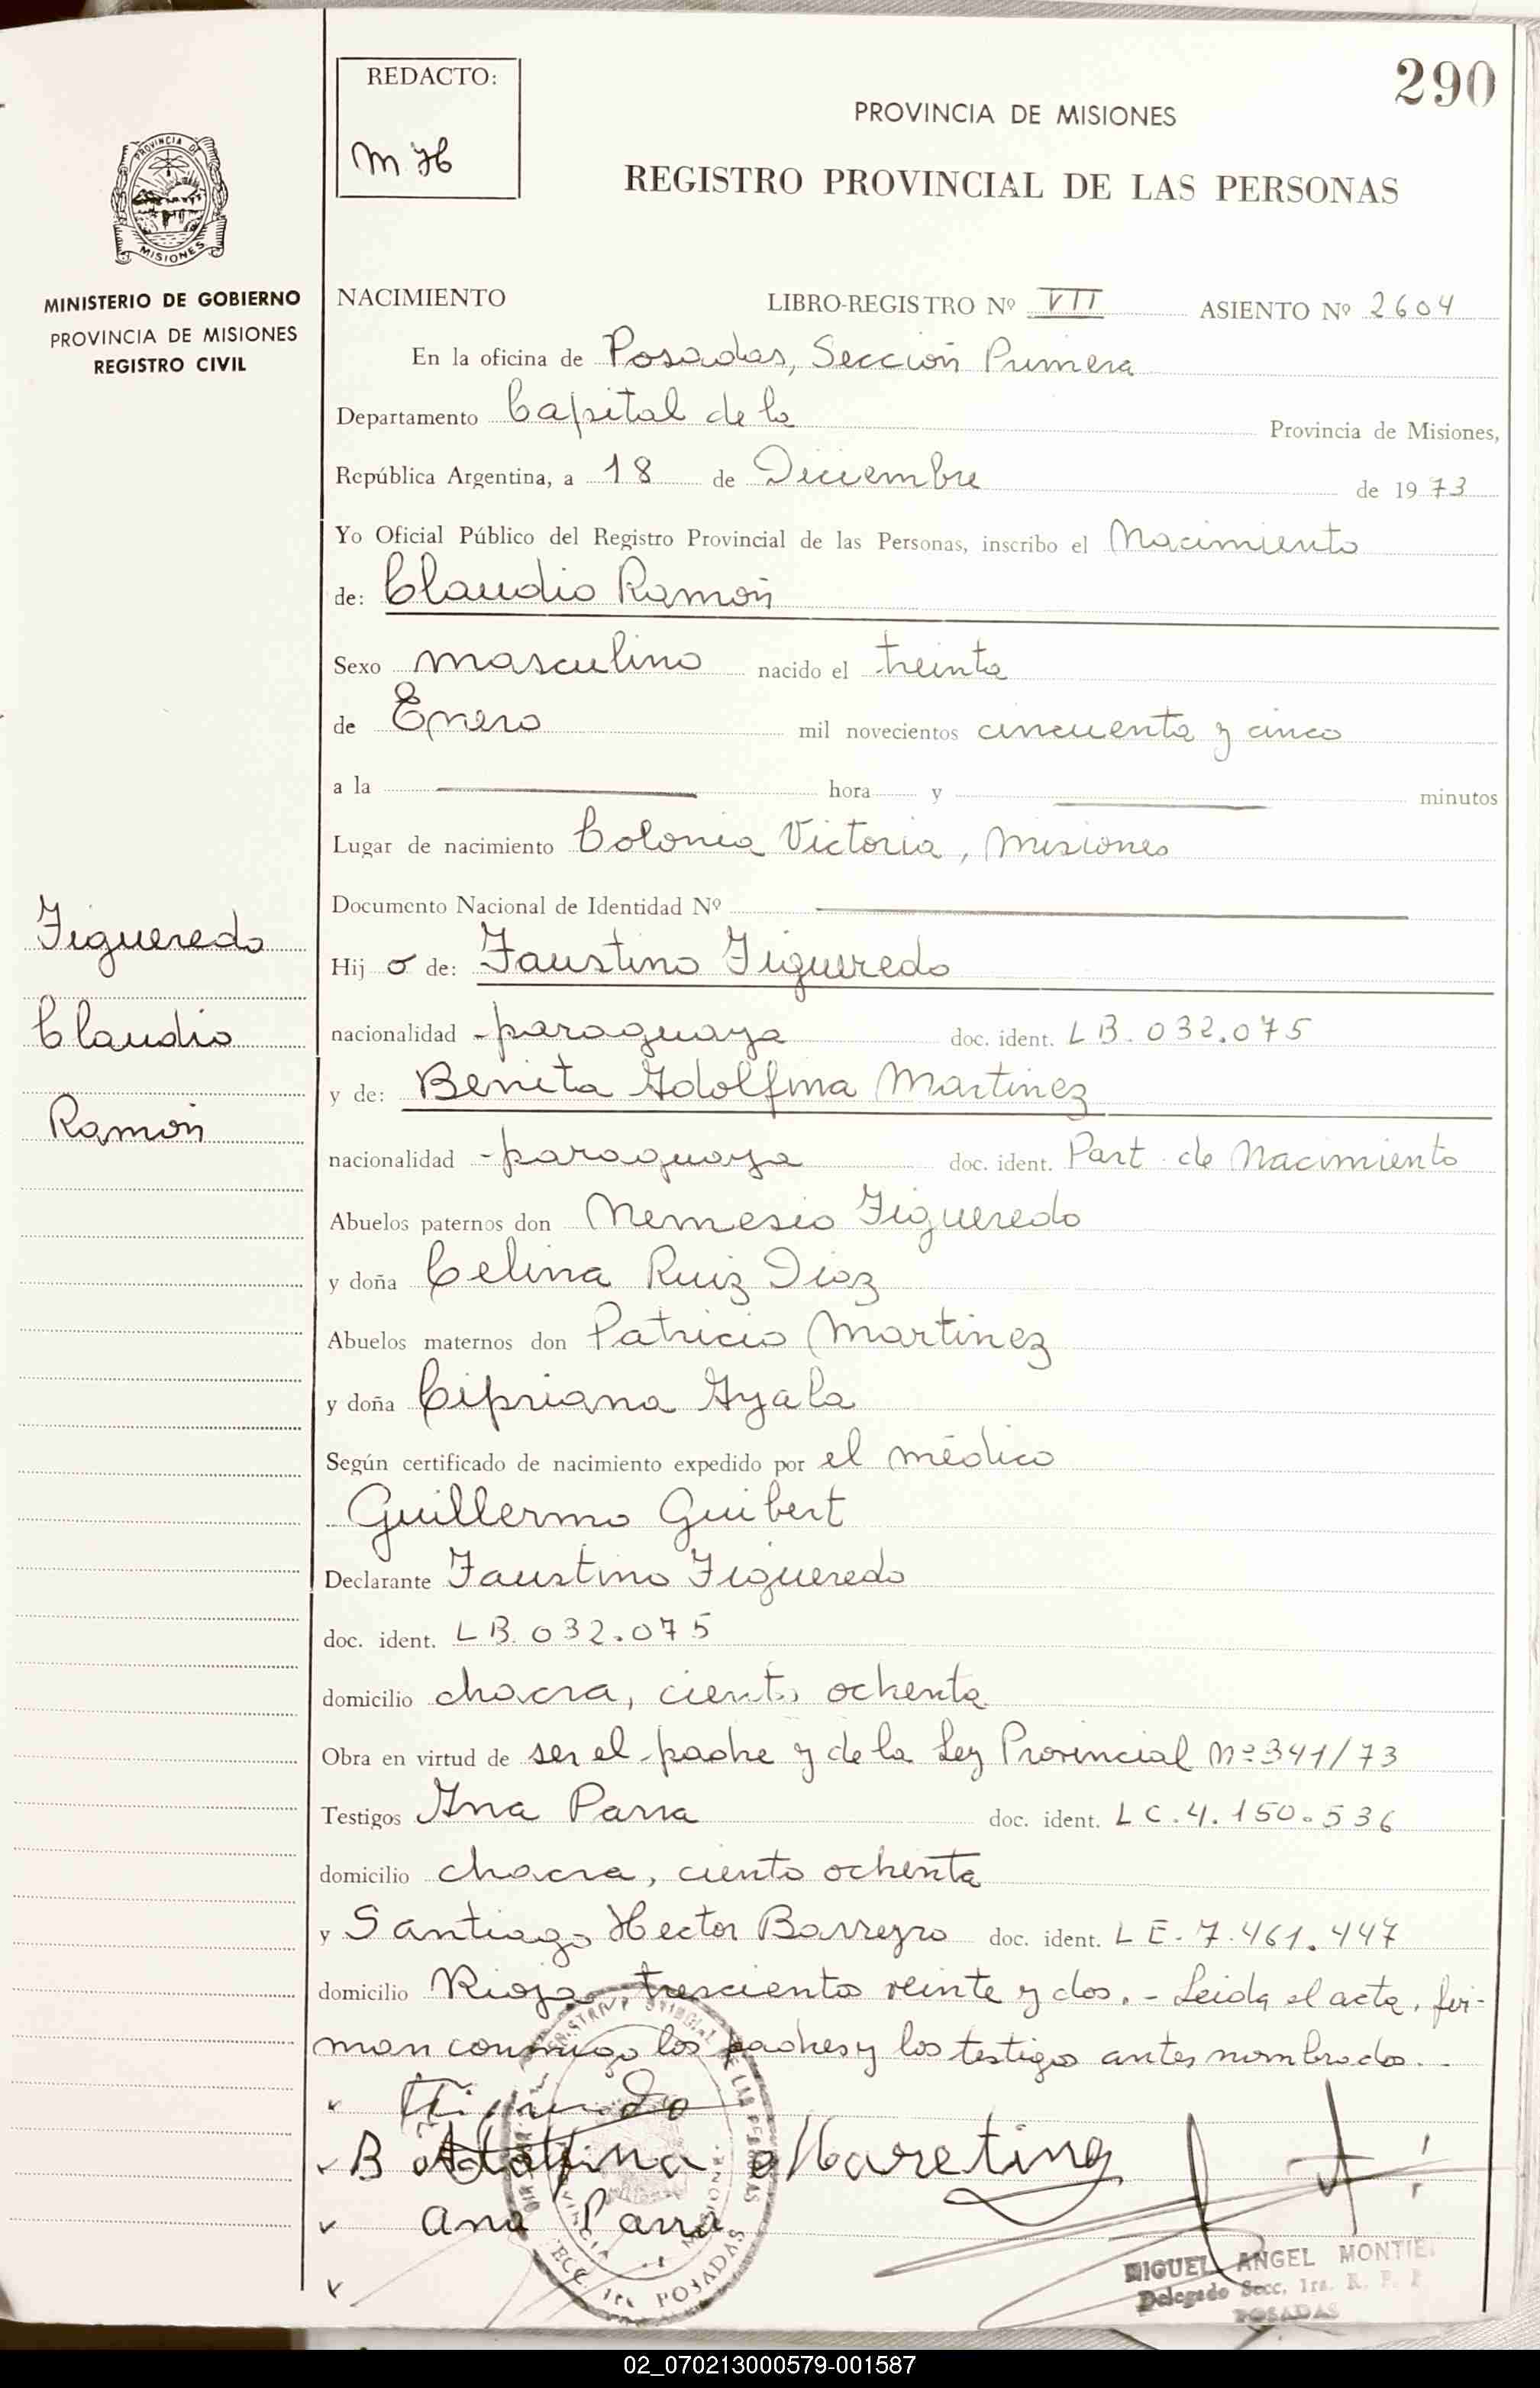 290
REDACTO:
M H
PROVINCIA DE MISIONES
REGISTRO PROVINCIAL DE LAS PERSONAS
PROVINCIA DE
MISIONES
MINISTERIO DE GOBIERNO
PROVINCIA DE MISIONES
REGISTRO CIVIL
NACIMIENTO LIBRO-REGISTRO Nº VII ASIENTO Nº 2604
En la oficina de Posadas, Sección Primera
Departamento Capital de la Provincia de Misiones,
República Argentina, a 18 de Diciembre de 1973
Yo Oficial Público del Registro Provincial de las Personas, inscribo el Nacimiento
de: Claudio Ramón
Sexo masculino nacido el treinta
de Enero mil novecientos cincuenta y cinco
a la hora y minutos
Lugar de nacimiento Colonia Victoria, Misiones
Documento Nacional de Identidad Nº
Figueredo
Claudio
Ramón
Hijo de: Faustino Figueredo
nacionalidad paraguaya doc. ident. L B. 032.075
y de: Benita Adolfina Martinez
nacionalidad paraguaya doc. ident. Part. de Nacimiento
Abuelos paternos don Nemesio Figueredo
y doña Celina Ruiz Diaz
Abuelos maternos don Patricio Martinez
y doña Cipriana Ayala
Según certificado de nacimiento expedido por el médico
Guillermo Guibert
Declarante Faustino Figueredo
doc. ident. L B. 032.075
domicilio chacra, ciento ochenta
Obra en virtud de ser el padre y de la Ley Provincial Nº 341/73
Testigos Ana Parra doc. ident. L C. 4.150.536
domicilio chacra, ciento ochenta
y Santiago Hector Barreyro doc. ident. L E. 7.461.447
domicilio Rioja trescientos veinte y dos. - Leida el acta, fir-
man conmigo los padres y los testigos antes nombrados. -
B Adolfina Maretinz
Ana Parra
MIGUEL ANGEL MONTIEL
Delegado Secc. 1ra. R. P. P.
POSADAS
SECC. 1ra. POSADAS
02_070213000579-001587